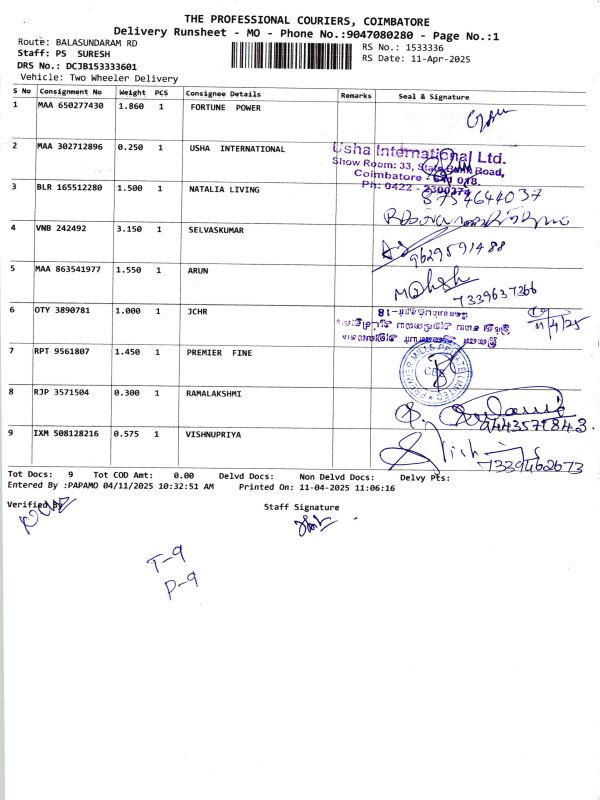 THE PROFESSIONAL COURIERS, COIMBATORE
Delivery Runsheet - MO - Phone No.:9047080280 - Page No.:1
Route: BALASUNDARAM RD
RS No.: 1533336
Staff: PS SURESH
RS Date: 11-Apr-2025
DRS No.: DCJB153333601
Vehicle: Two Wheeler Delivery
S No Consignment No Weight PCS Consignee Details Remarks Seal & Signature
1 MAA 650277430 1.860 1 FORTUNE POWER
2 MAA 302712896 0.250 1 USHA INTERNATIONAL
Usha International Ltd.
Show Room: 33, State Bank Road,
Coimbatore - 641 018.
Ph: 0422 - 2300274
3 BLR 165512280 1.500 1 NATALIA LIVING
8754644037
4 VNB 242492 3.150 1 SELVASKUMAR
9629591488
5 MAA 863541977 1.550 1 ARUN
Mahesh
7339637266
6 OTY 3890781 1.000 1 JCHR
11/4/25
7 RPT 9561807 1.450 1 PREMIER FINE
PREMIER MILLS PRIVATE LIMITED
CBE
8 RJP 3571504 0.300 1 RAMALAKSHMI
9443571843.
9 IXM 508128216 0.575 1 VISHNUPRIYA
7339462673
Tot Docs: 9 Tot COD Amt: 0.00 Delvd Docs: Non Delvd Docs: Delvy Pts:
Entered By :PAPAMO 04/11/2025 10:32:51 AM Printed On: 11-04-2025 11:06:16
Verified By
Staff Signature
T-9
P-9